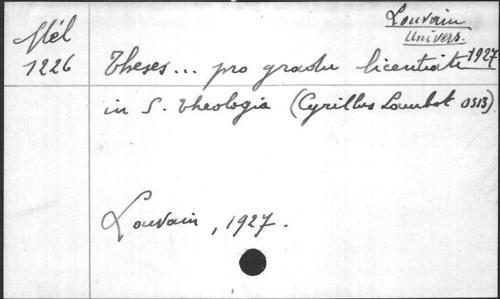 Louvain
Univers.
1927
Mél
1226
Theses... pro gradu licentiati
in S. Theologia (Cyrillus Lambot OSB)
Louvain, 1927.